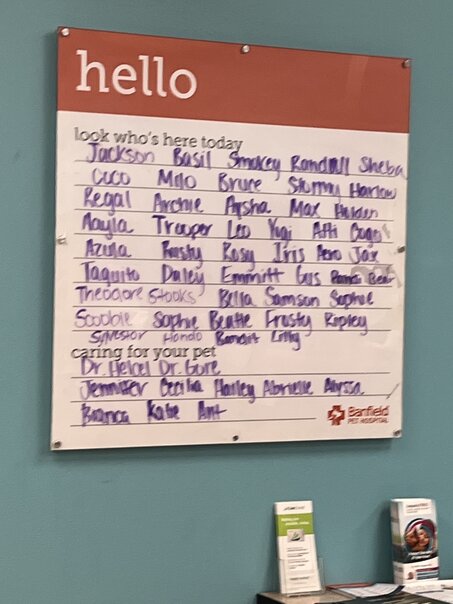 hello
look who's here today
Jackson Basil Smokey Randall Sheba
Coco Milo Bruce Stormy Harlow
Regal Archie Aysha Max Holden
Nayla Trooper Leo Yugi Atti
Azula Rusty Rosy Iris Aero Jax
Taquito Daley Emmitt Gus Bear
Theodore Stooks Bella Samson Sophie
Scoobie Sophie Beatie Frosty Ripley
Sylvestor Hondo Bandit Lilly
caring for your pet
Dr. Heicel Dr. Gore
Jennifer Cecilia Hailey Abrielle Alyssa
Bianca Katie Ant
Banfield
PET HOSPITAL